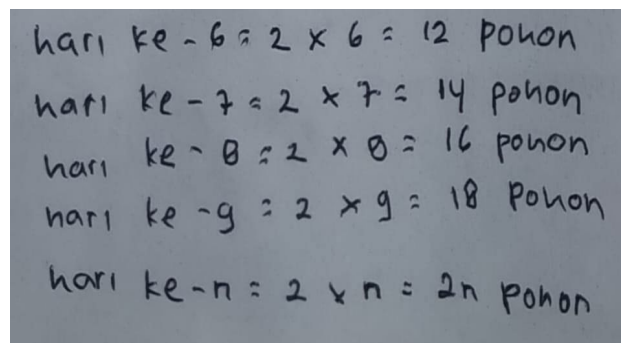 hari ke - 6 = 2 x 6 = 12 pohon
hari ke - 7 = 2 x 7 = 14 pohon
hari ke - 8 = 2 x 8 = 16 pohon
hari ke - 9 = 2 x 9 = 18 pohon
hari ke - n = 2 x n = 2n pohon